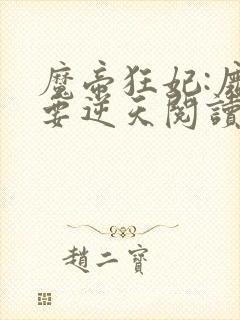 魔帝狂妃:
要逆天閱讀
趙二寶